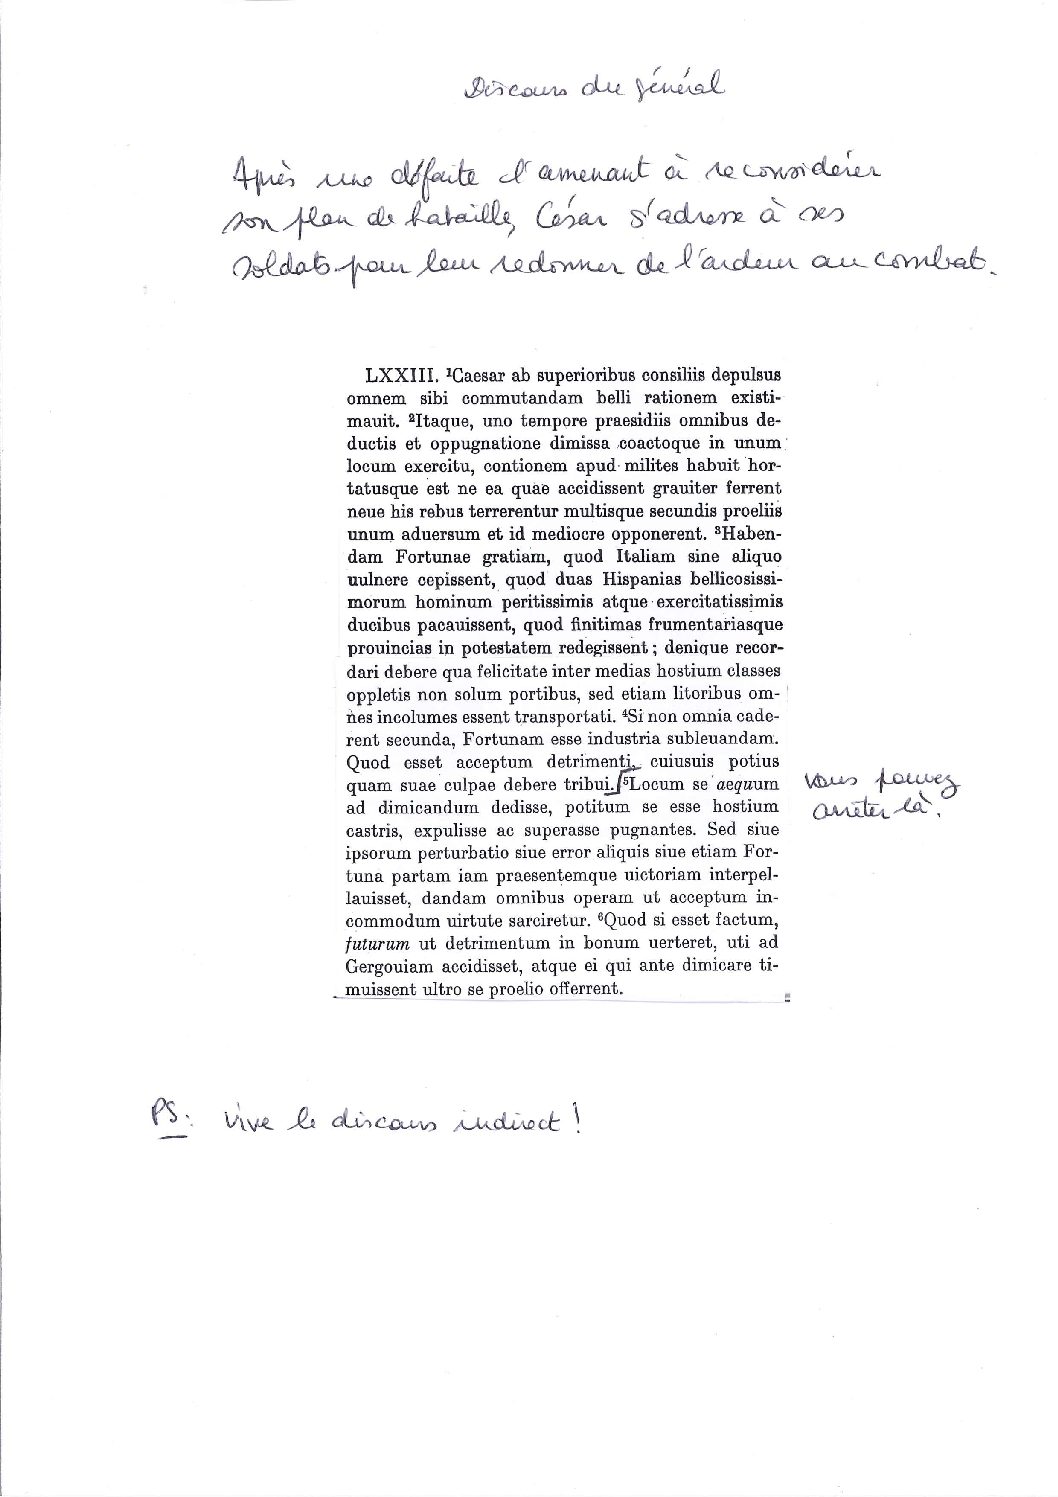 Discours du général
Après une défaite l'amenant à reconsidérer
son plan de bataille, César s'adresse à ses
soldats pour leur redonner de l'ardeur au combat.
LXXIII. ¹Caesar ab superioribus consiliis depulsus
omnem sibi commutandam belli rationem existi-
mauit. ²Itaque, uno tempore praesidiis omnibus de-
ductis et oppugnatione dimissa coactoque in unum
locum exercitu, contionem apud milites habuit hor-
tatusque est ne ea quae accidissent grauiter ferrent
neue his rebus terrerentur multisque secundis proeliis
unum aduersum et id mediocre opponerent. ³Haben-
dam Fortunae gratiam, quod Italiam sine aliquo
uulnere cepissent, quod duas Hispanias bellicosissi-
morum hominum peritissimis atque exercitatissimis
ducibus pacauissent, quod finitimas frumentariasque
prouincias in potestatem redegissent ; denique recor-
dari debere qua felicitate inter medias hostium classes
oppletis non solum portibus, sed etiam litoribus om-
nes incolumes essent transportati. ⁴Si non omnia cade-
rent secunda, Fortunam esse industria subleuandam.
Quod esset acceptum detrimenti, cuiusuis potius
quam suae culpae debere tribui. ⁵Locum se aequum
ad dimicandum dedisse, potitum se esse hostium
castris, expulisse ac superasse pugnantes. Sed siue
ipsorum perturbatio siue error aliquis siue etiam For-
tuna partam iam praesentemque uictoriam interpel-
lauisset, dandam omnibus operam ut acceptum in-
commodum uirtute sarciretur. ⁶Quod si esset factum,
futurum ut detrimentum in bonum uerteret, uti ad
Gergouiam accidisset, atque ei qui ante dimicare ti-
muissent ultro se proelio offerrent.
vous pouvez
arrêter là.
PS: Vive le discours indirect !